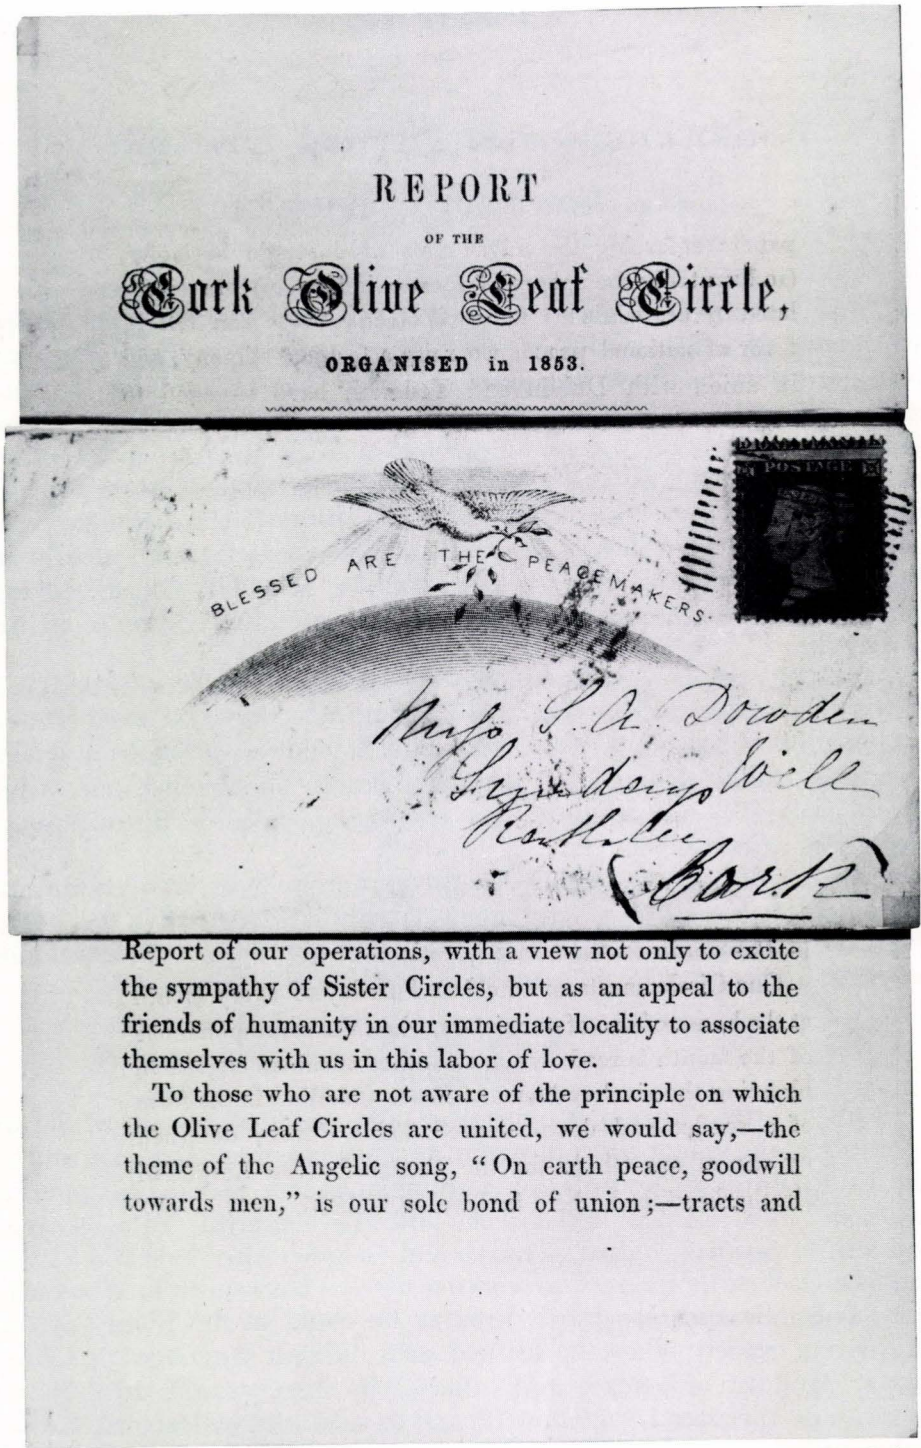 REPORT
OF THE
Cork Olive Leaf Circle,
ORGANISED in 1853.
POSTAGE
BLESSED ARE THE PEACEMAKERS.
Miss S. A. Dowden
Sundays Well
(Cork)
Report of our operations, with a view not only to excite
the sympathy of Sister Circles, but as an appeal to the
friends of humanity in our immediate locality to associate
themselves with us in this labor of love.
To those who are not aware of the principle on which
the Olive Leaf Circles are united, we would say,—the
theme of the Angelic song, “On earth peace, goodwill
towards men,” is our sole bond of union;—tracts and